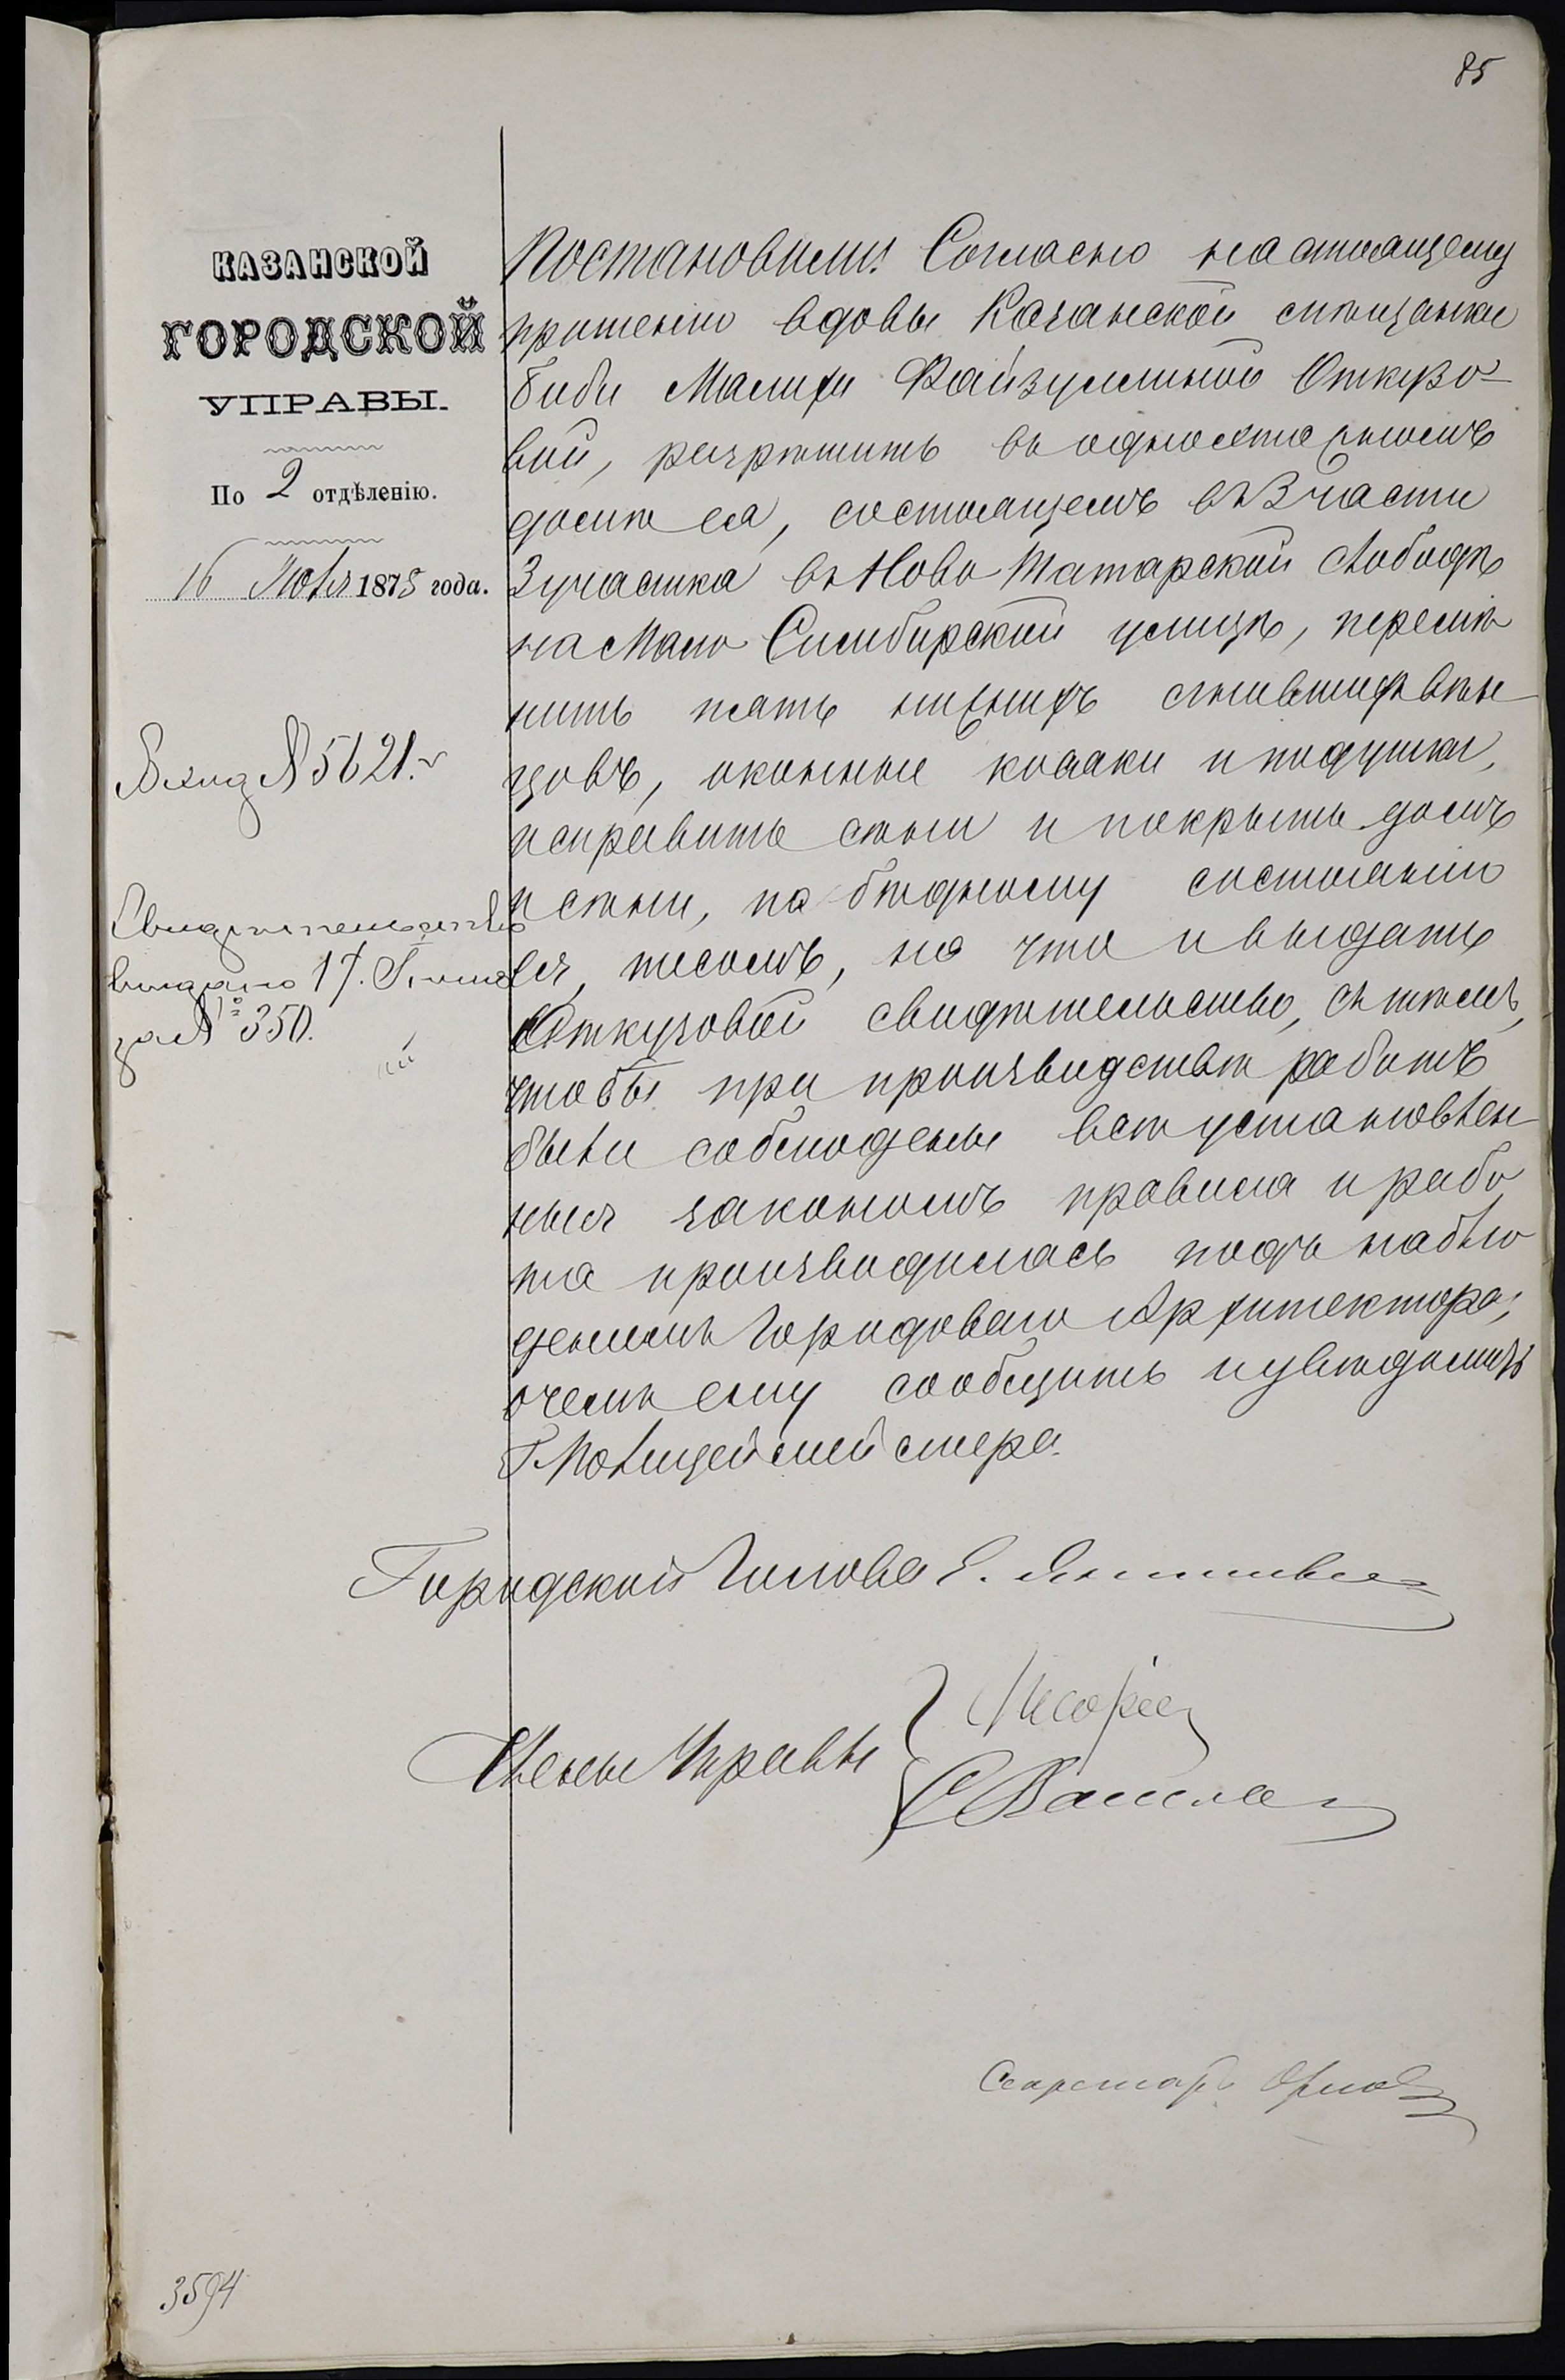 85
КАЗАНСКОЙ
ГОРОДСКОЙ
УПРАВЫ.
По 2 отдѣленію.
16 Іюля 1875 года.
Вход №5621.
Свидѣтельство
выдано 17. Іюля
за №350.
Постановили: Согласно настоящему
прошенію вдовы Казанской мѣщанки
Биби Малихи Файзуллиной Откузо-
вой, разрѣшить въ одноэтажномъ
домѣ ея, состоящемъ въ 3 части
3 участка въ Ново Татарской слободѣ
на Мало Симбирской улицѣ, перемѣ
нить пять нижнихъ сгнившихъ вѣн
цовъ, оконные косяки и подушки,
исправить сѣни и покрыть домъ
и сѣни, по бѣдному состоянію
ея, тесомъ, на что и выдать
Откузовой свидѣтельство, съ тѣмъ,
чтобы при производствѣ работъ
были соблюдены всѣ установлен
ныя закономъ правила и рабо
та производилась подъ наблю
деніемъ Городоваго Архитектора;
о чемъ ему сообщить и увѣдомить
Г. Полицеймейстера.
Городской Голова
Члены Управы
Секретарь Орлов
3594